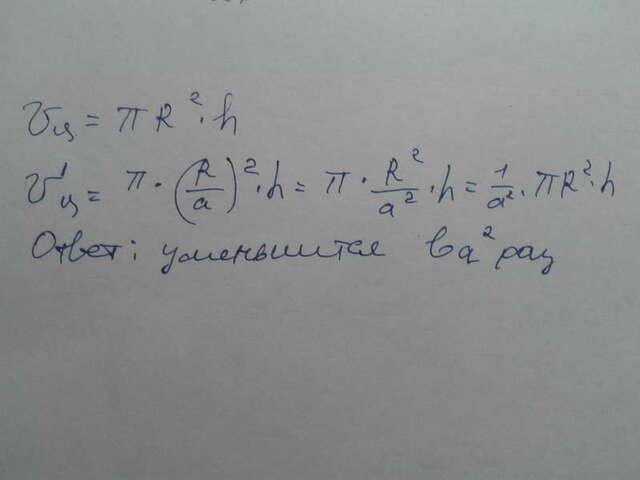 Vц = πR²·h
V'ц = π·(R/a)²·h = π·R²/a²·h = 1/a²·πR²·h
Ответ: уменьшится в a² раз